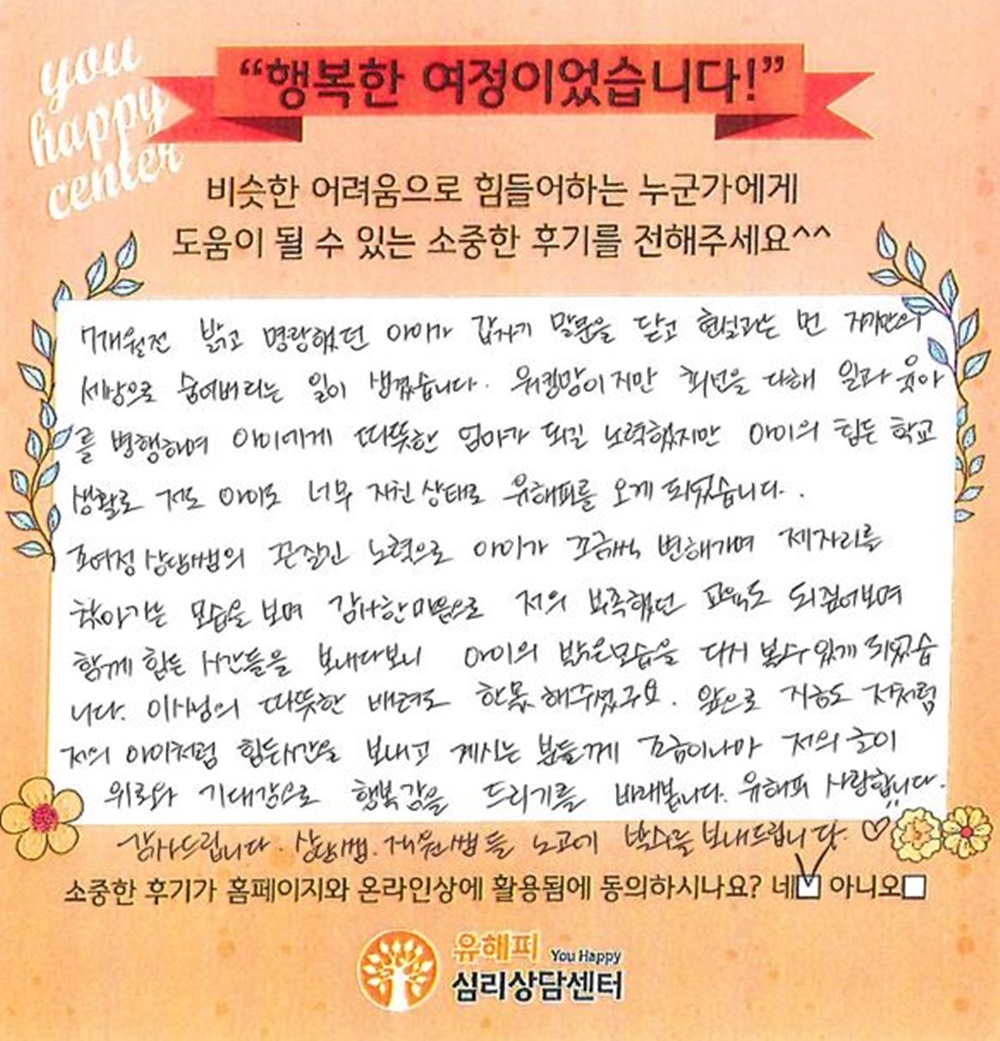 you
happy
center
“행복한 여정이었습니다!”
비슷한 어려움으로 힘들어하는 누군가에게
도움이 될 수 있는 소중한 후기를 전해주세요^^
7개월전 밝고 명랑했던 아이가 갑자기 말문을 닫고 현실과는 먼 자기만의
세상으로 숨어버리는 일이 생겼습니다. 워킹맘이지만 최선을 다해 일과 육아
를 병행하며 아이에게 따뜻한 엄마가 되길 노력했지만 아이의 힘든 학교
생활로 저도 아이도 너무 지친 상태로 유해피를 오게 되었습니다.
표여정 상담쌤의 끈질긴 노력으로 아이가 조금씩 변해가며 제자리를
찾아가는 모습을 보며 감사한마음으로 저의 부족했던 교육도 되짚어보며
함께 힘든 시간들을 보내다보니 아이의 밝은모습을 다시 볼수 있게 되었습
니다. 이사님의 따뜻한 배려도 한몫 해주셨구요. 앞으로 지금도 저처럼
저의 아이처럼 힘든시간을 보내고 계시는 분들께 조금이나마 저의 글이
위로와 기대감으로 행복감을 드리기를 바래봅니다. 유해피 사랑합니다.
감사드립니다. 상담쌤. 직원쌤들 노고에 박수를 보내드립니다. ♡
소중한 후기가 홈페이지와 온라인상에 활용됨에 동의하시나요? 네☑ 아니오☐
유해피 You Happy
심리상담센터